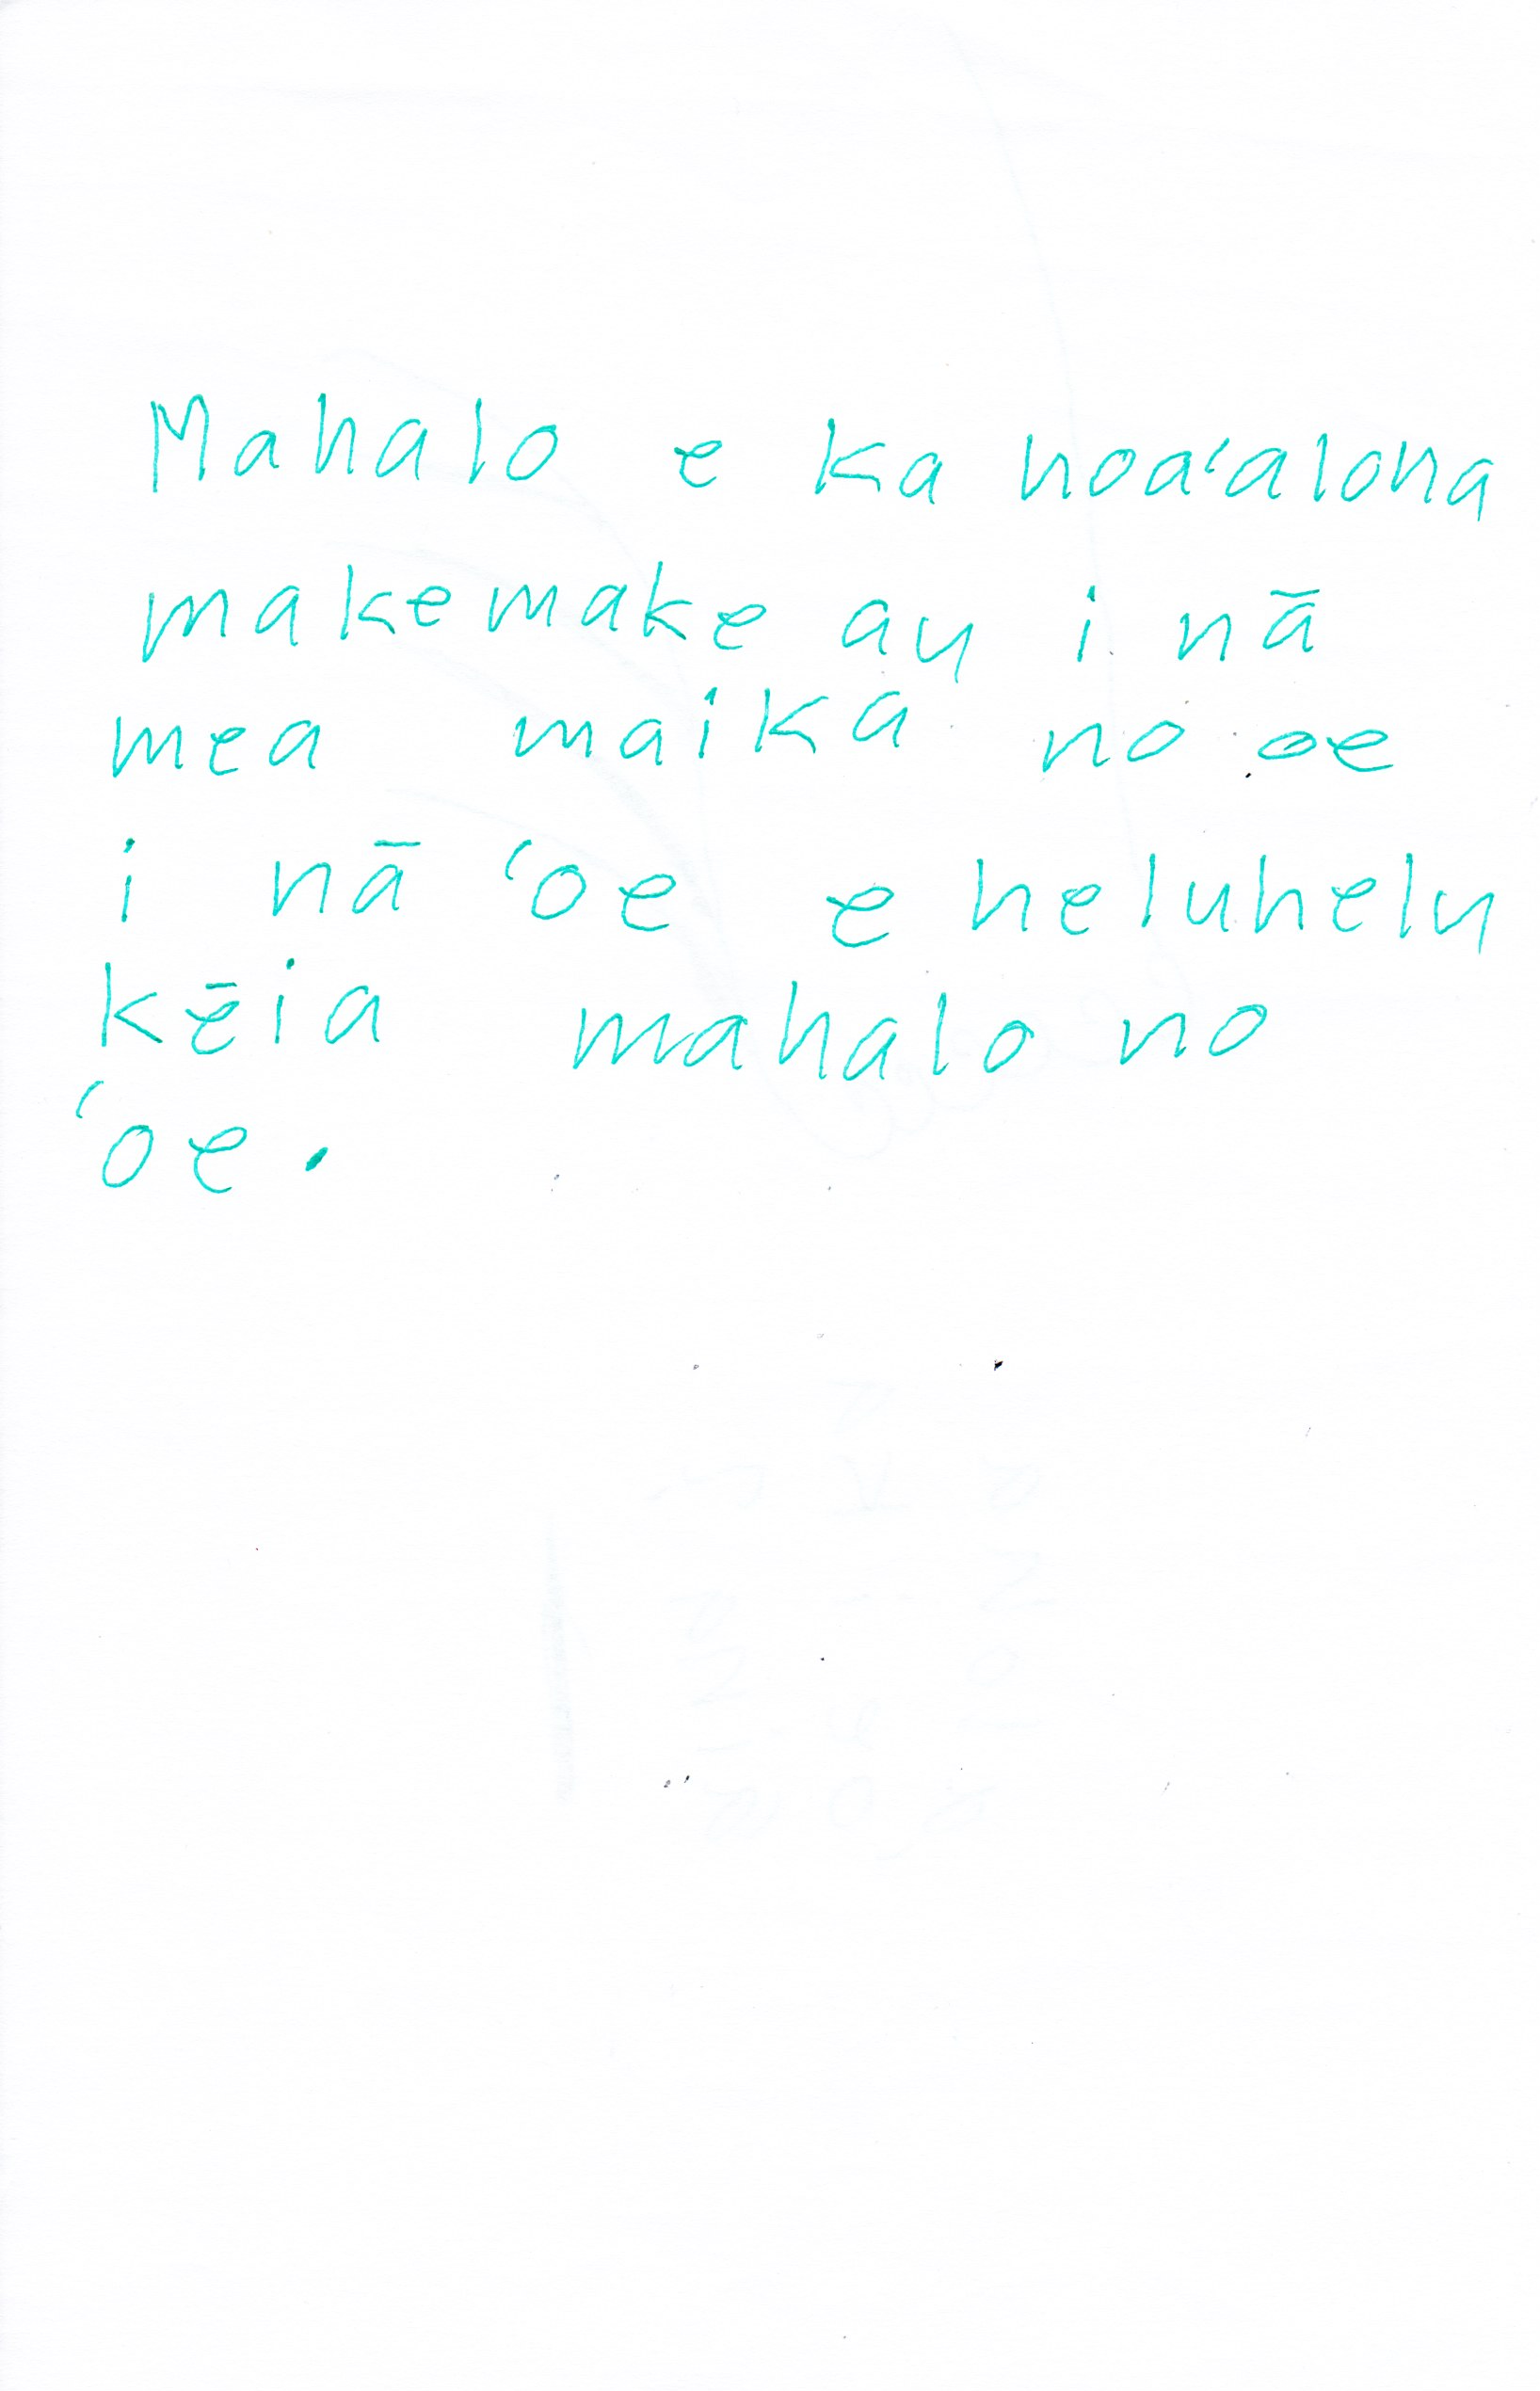 Mahalo e ka hoaʻaloha
makemake au i nā
mea maika no oe
i nā ʻoe e heluhelu
kēia mahalo no
ʻoe.